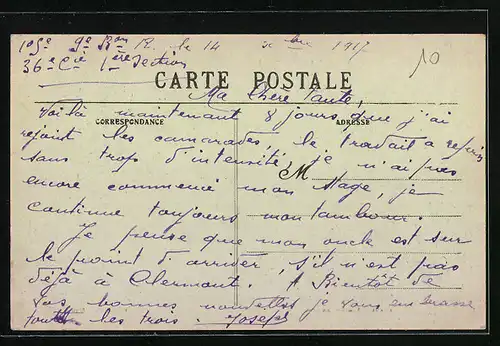 105e 9e Bon R. le 14 xbre 1917
36e Cie 1ère Section
10
CARTE POSTALE
Ma Chère Tante,
CORRESPONDANCE
ADRESSE
Voilà maintenant 8 jours que j'ai
rejoint les camarades, le travail a repris
sans trop d'intensité, je n'ai pas
M
encore commencé mon stage, je
continue toujours mon tambour.
Je pense que mon oncle est sur
le point d'arriver, s'il n'est pas
déjà à Clermont. A Bientôt de
vos bonnes nouvelles je vous embrasse
tous les trois. Joseph